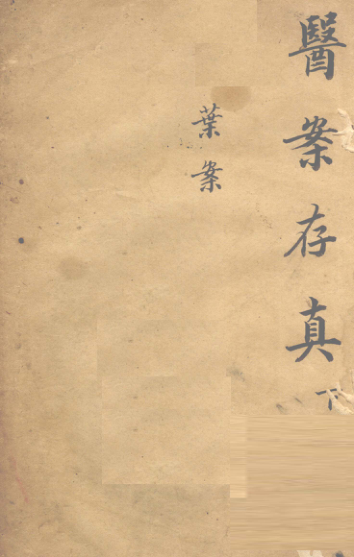 醫案存真下
葉案